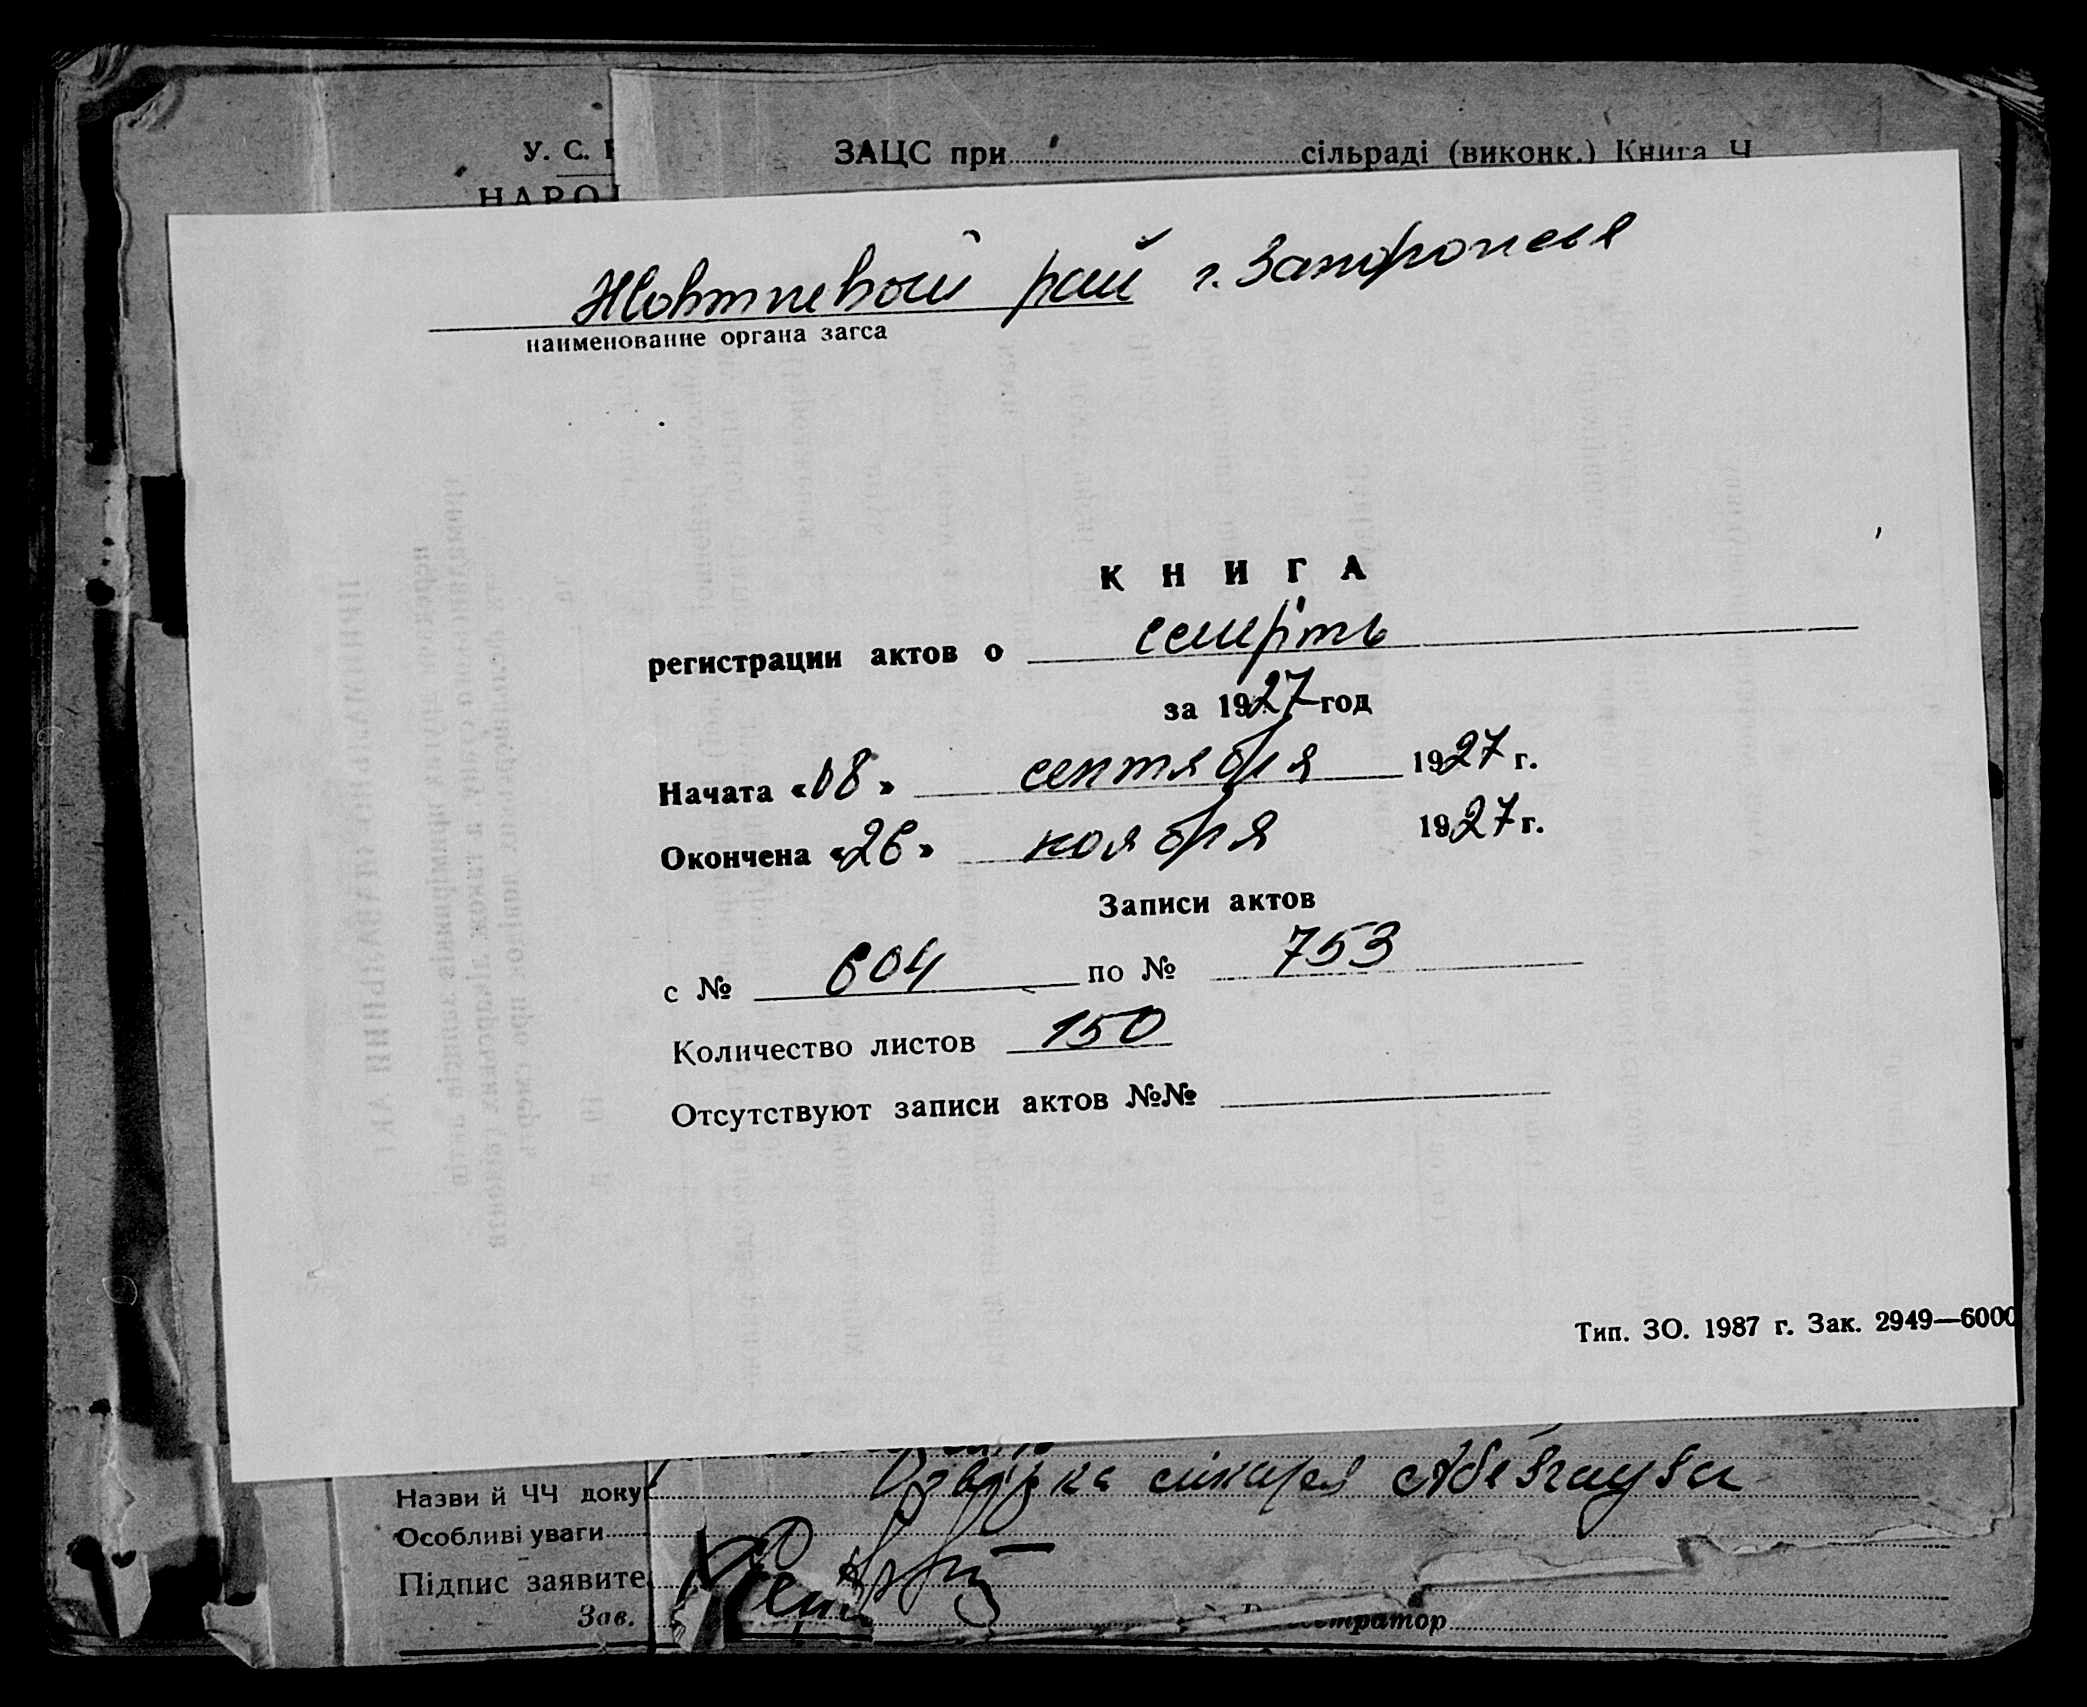 У. С.
ЗАЦС при сільраді (виконк.) Книга Ч
НАРО
Жовтневой рай г. Запорожья
наименование органа загса
КНИГА
регистрации актов о смерть
за 1927 год
Начата «08» сентября 1927 г.
Окончена «26» ноября 1927 г.
Записи актов
с № 604 по № 753
Количество листов 150
Отсутствуют записи актов №№
Тип. ЗО. 1987 г. Зак. 2949—6000
Назви й ЧЧ доку
Особливі уваги
Підпис заявите
Зав.